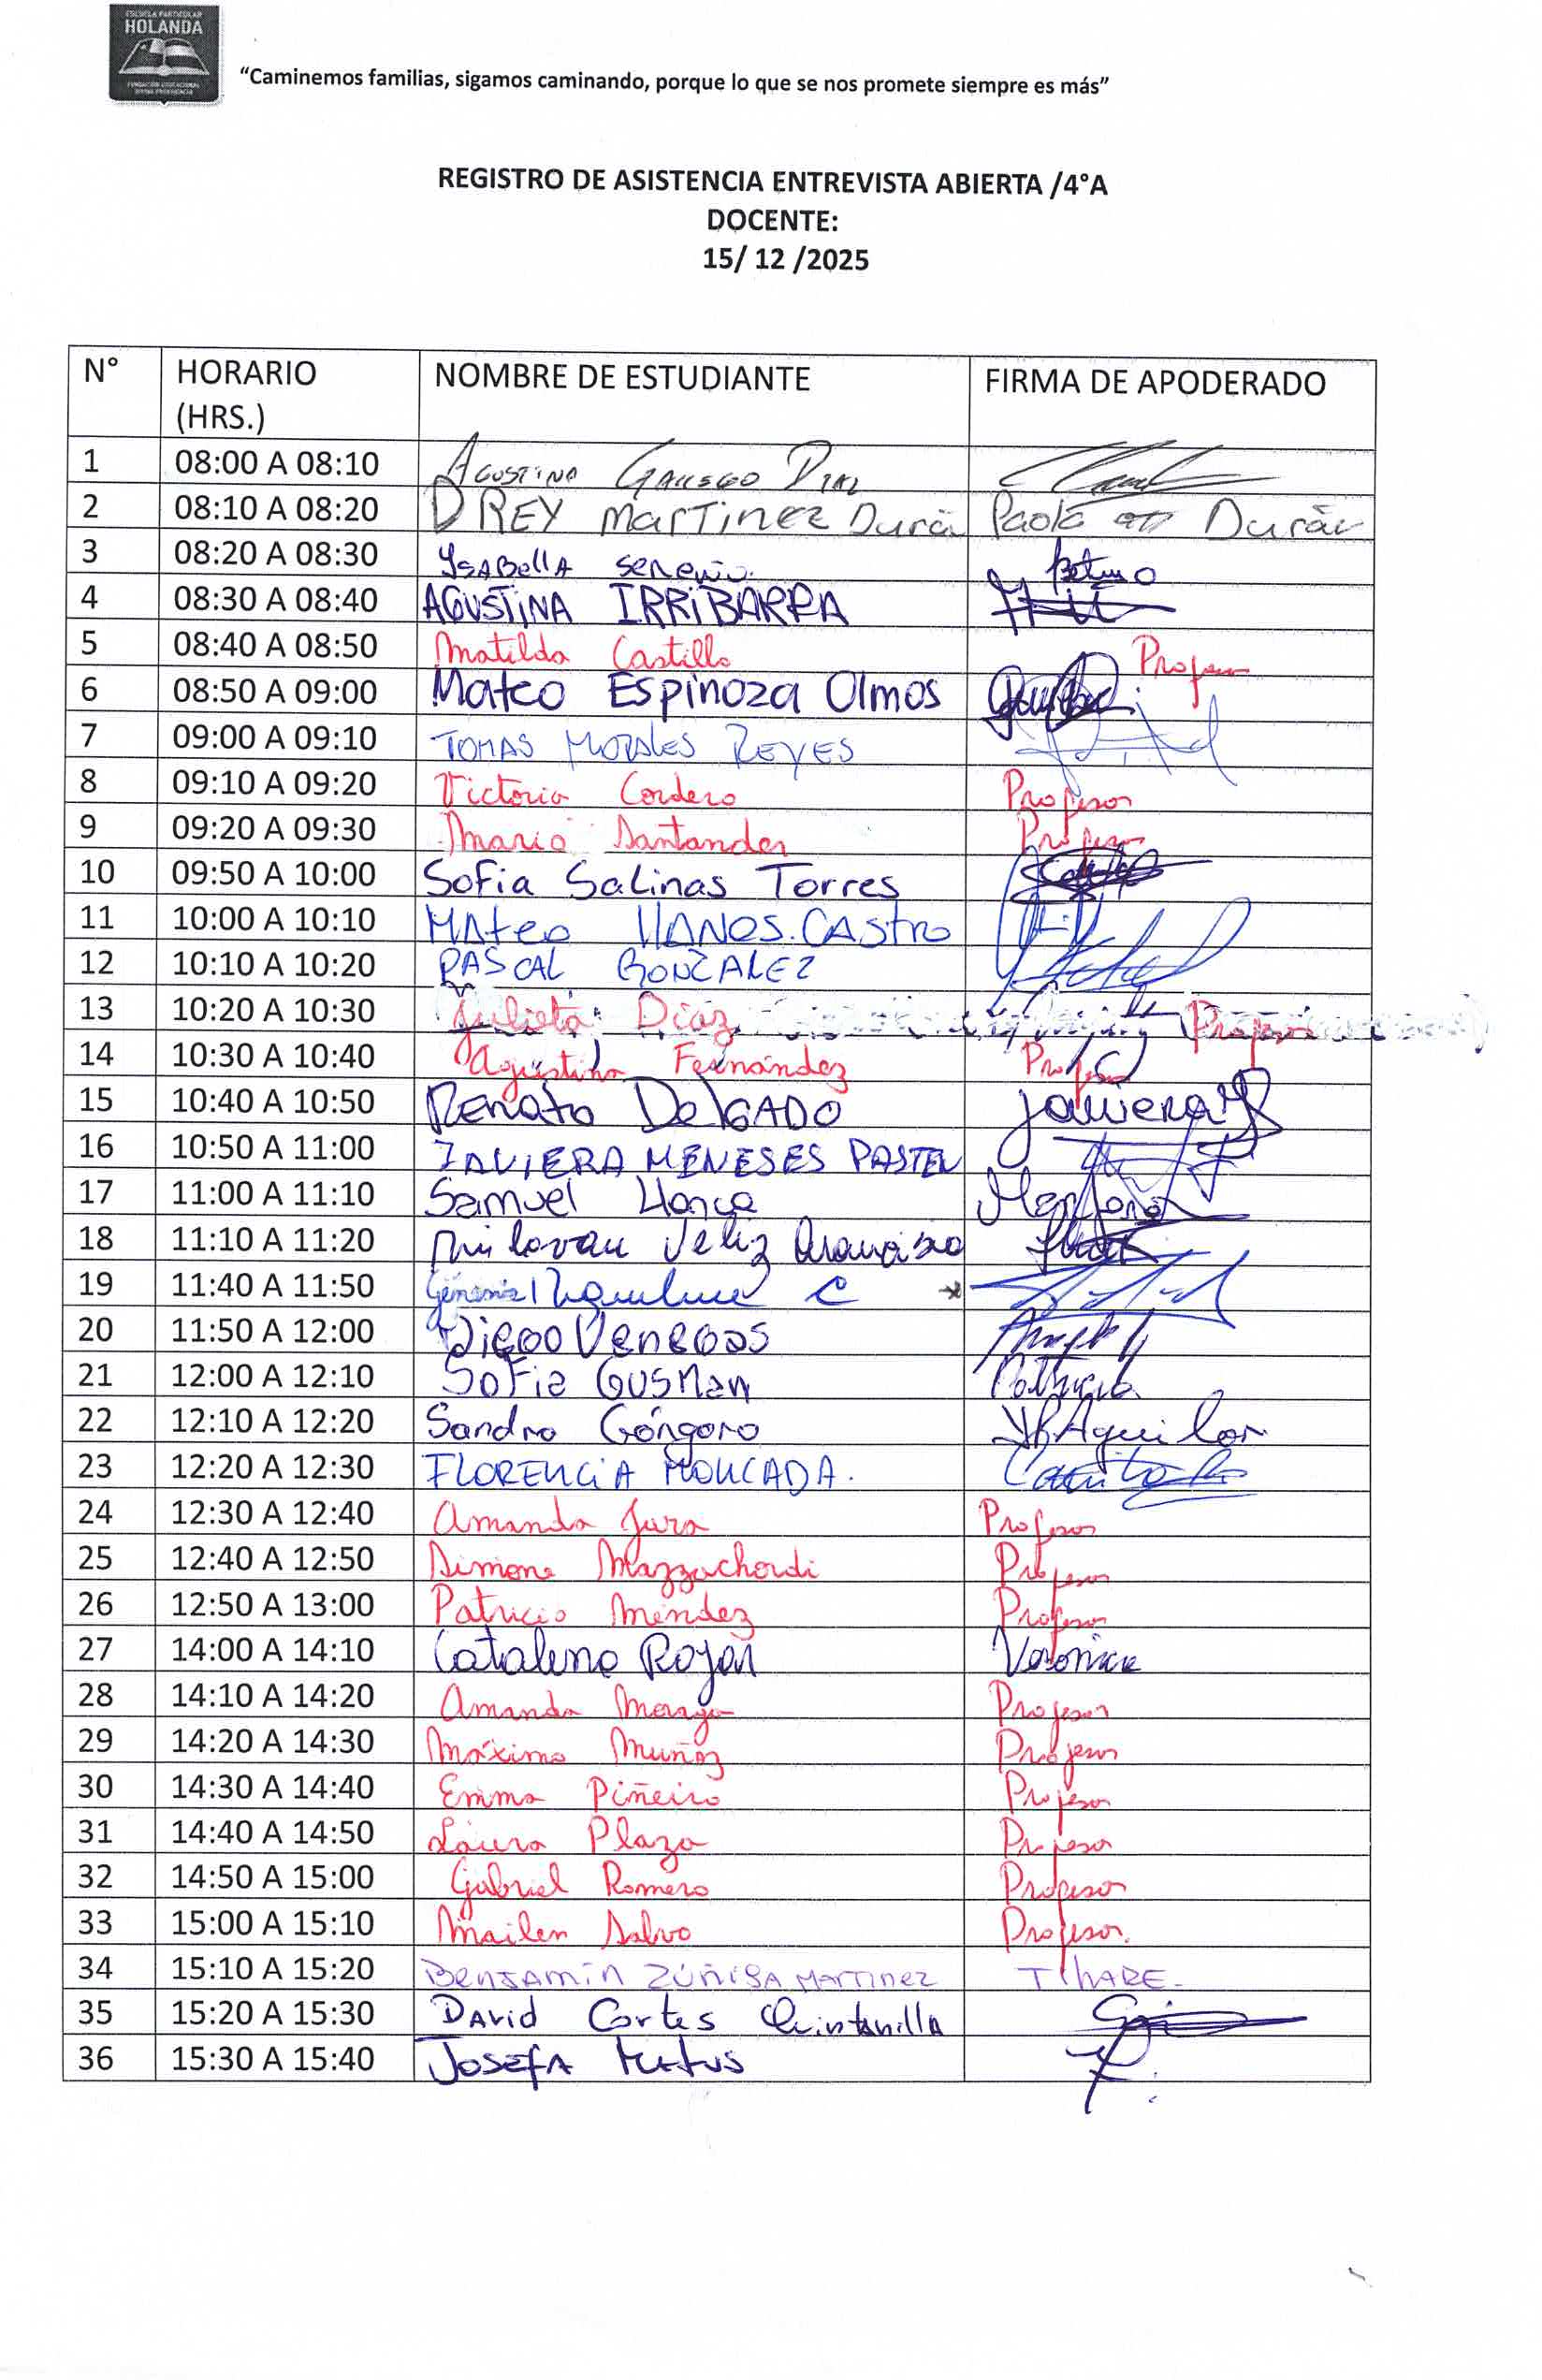 ESCUELA PARTICULAR
HOLANDA
FUNDACIÓN EDUCACIONAL
DIVINA PROVIDENCIA
“Caminemos familias, sigamos caminando, porque lo que se nos promete siempre es más”
REGISTRO DE ASISTENCIA ENTREVISTA ABIERTA /4°A
DOCENTE:
15/ 12 /2025
N° HORARIO (HRS.) NOMBRE DE ESTUDIANTE FIRMA DE APODERADO
1 08:00 A 08:10 AGUSTINA GALLEGO DIAZ
2 08:10 A 08:20 DREY MARTINEZ Durán Paola Durán
3 08:20 A 08:30 YSABellA
4 08:30 A 08:40 AGUSTINA IRRIBARRA
5 08:40 A 08:50 Matilda Castillo Profesor
6 08:50 A 09:00 Mateo Espinoza Olmos
7 09:00 A 09:10 TOMAS MORALES REYES
8 09:10 A 09:20 Victoria Cordero Profesor
9 09:20 A 09:30 Maria Santander Profesor
10 09:50 A 10:00 Sofia Salinas Torres
11 10:00 A 10:10 MAteo LLANOS. CAStro
12 10:10 A 10:20 PASCAL GONZALEZ
13 10:20 A 10:30 Julieta Díaz Profesor
14 10:30 A 10:40 Agustina Fernández Profesor
15 10:40 A 10:50 Renato DelGADO Javiera
16 10:50 A 11:00 JAVIERA MENESES PASTEN
17 11:00 A 11:10 Samuel
18 11:10 A 11:20 Milovan Veliz
19 11:40 A 11:50 C
20 11:50 A 12:00 Diego Venegas
21 12:00 A 12:10 Sofia Gusman Patricia
22 12:10 A 12:20 Sandra Góngora Aguilar
23 12:20 A 12:30 FLORENCIA MONCADA.
24 12:30 A 12:40 Amanda Jara Profesor
25 12:40 A 12:50 Simone Profesor
26 12:50 A 13:00 Patricio Méndez Profesor
27 14:00 A 14:10 Catalina Rojas Veronica
28 14:10 A 14:20 Amanda Profesor
29 14:20 A 14:30 Máximo Muñoz Profesor
30 14:30 A 14:40 Emma Piñeiro Profesor
31 14:40 A 14:50 Laura Plaza Profesor
32 14:50 A 15:00 Gabriel Romero Profesor
33 15:00 A 15:10 Mailen Salvo Profesor.
34 15:10 A 15:20 BENJAMÍN ZÚÑIGA MARTINEZ
35 15:20 A 15:30 DAVID Cortes QuintanillA
36 15:30 A 15:40 JOSEFA Matus